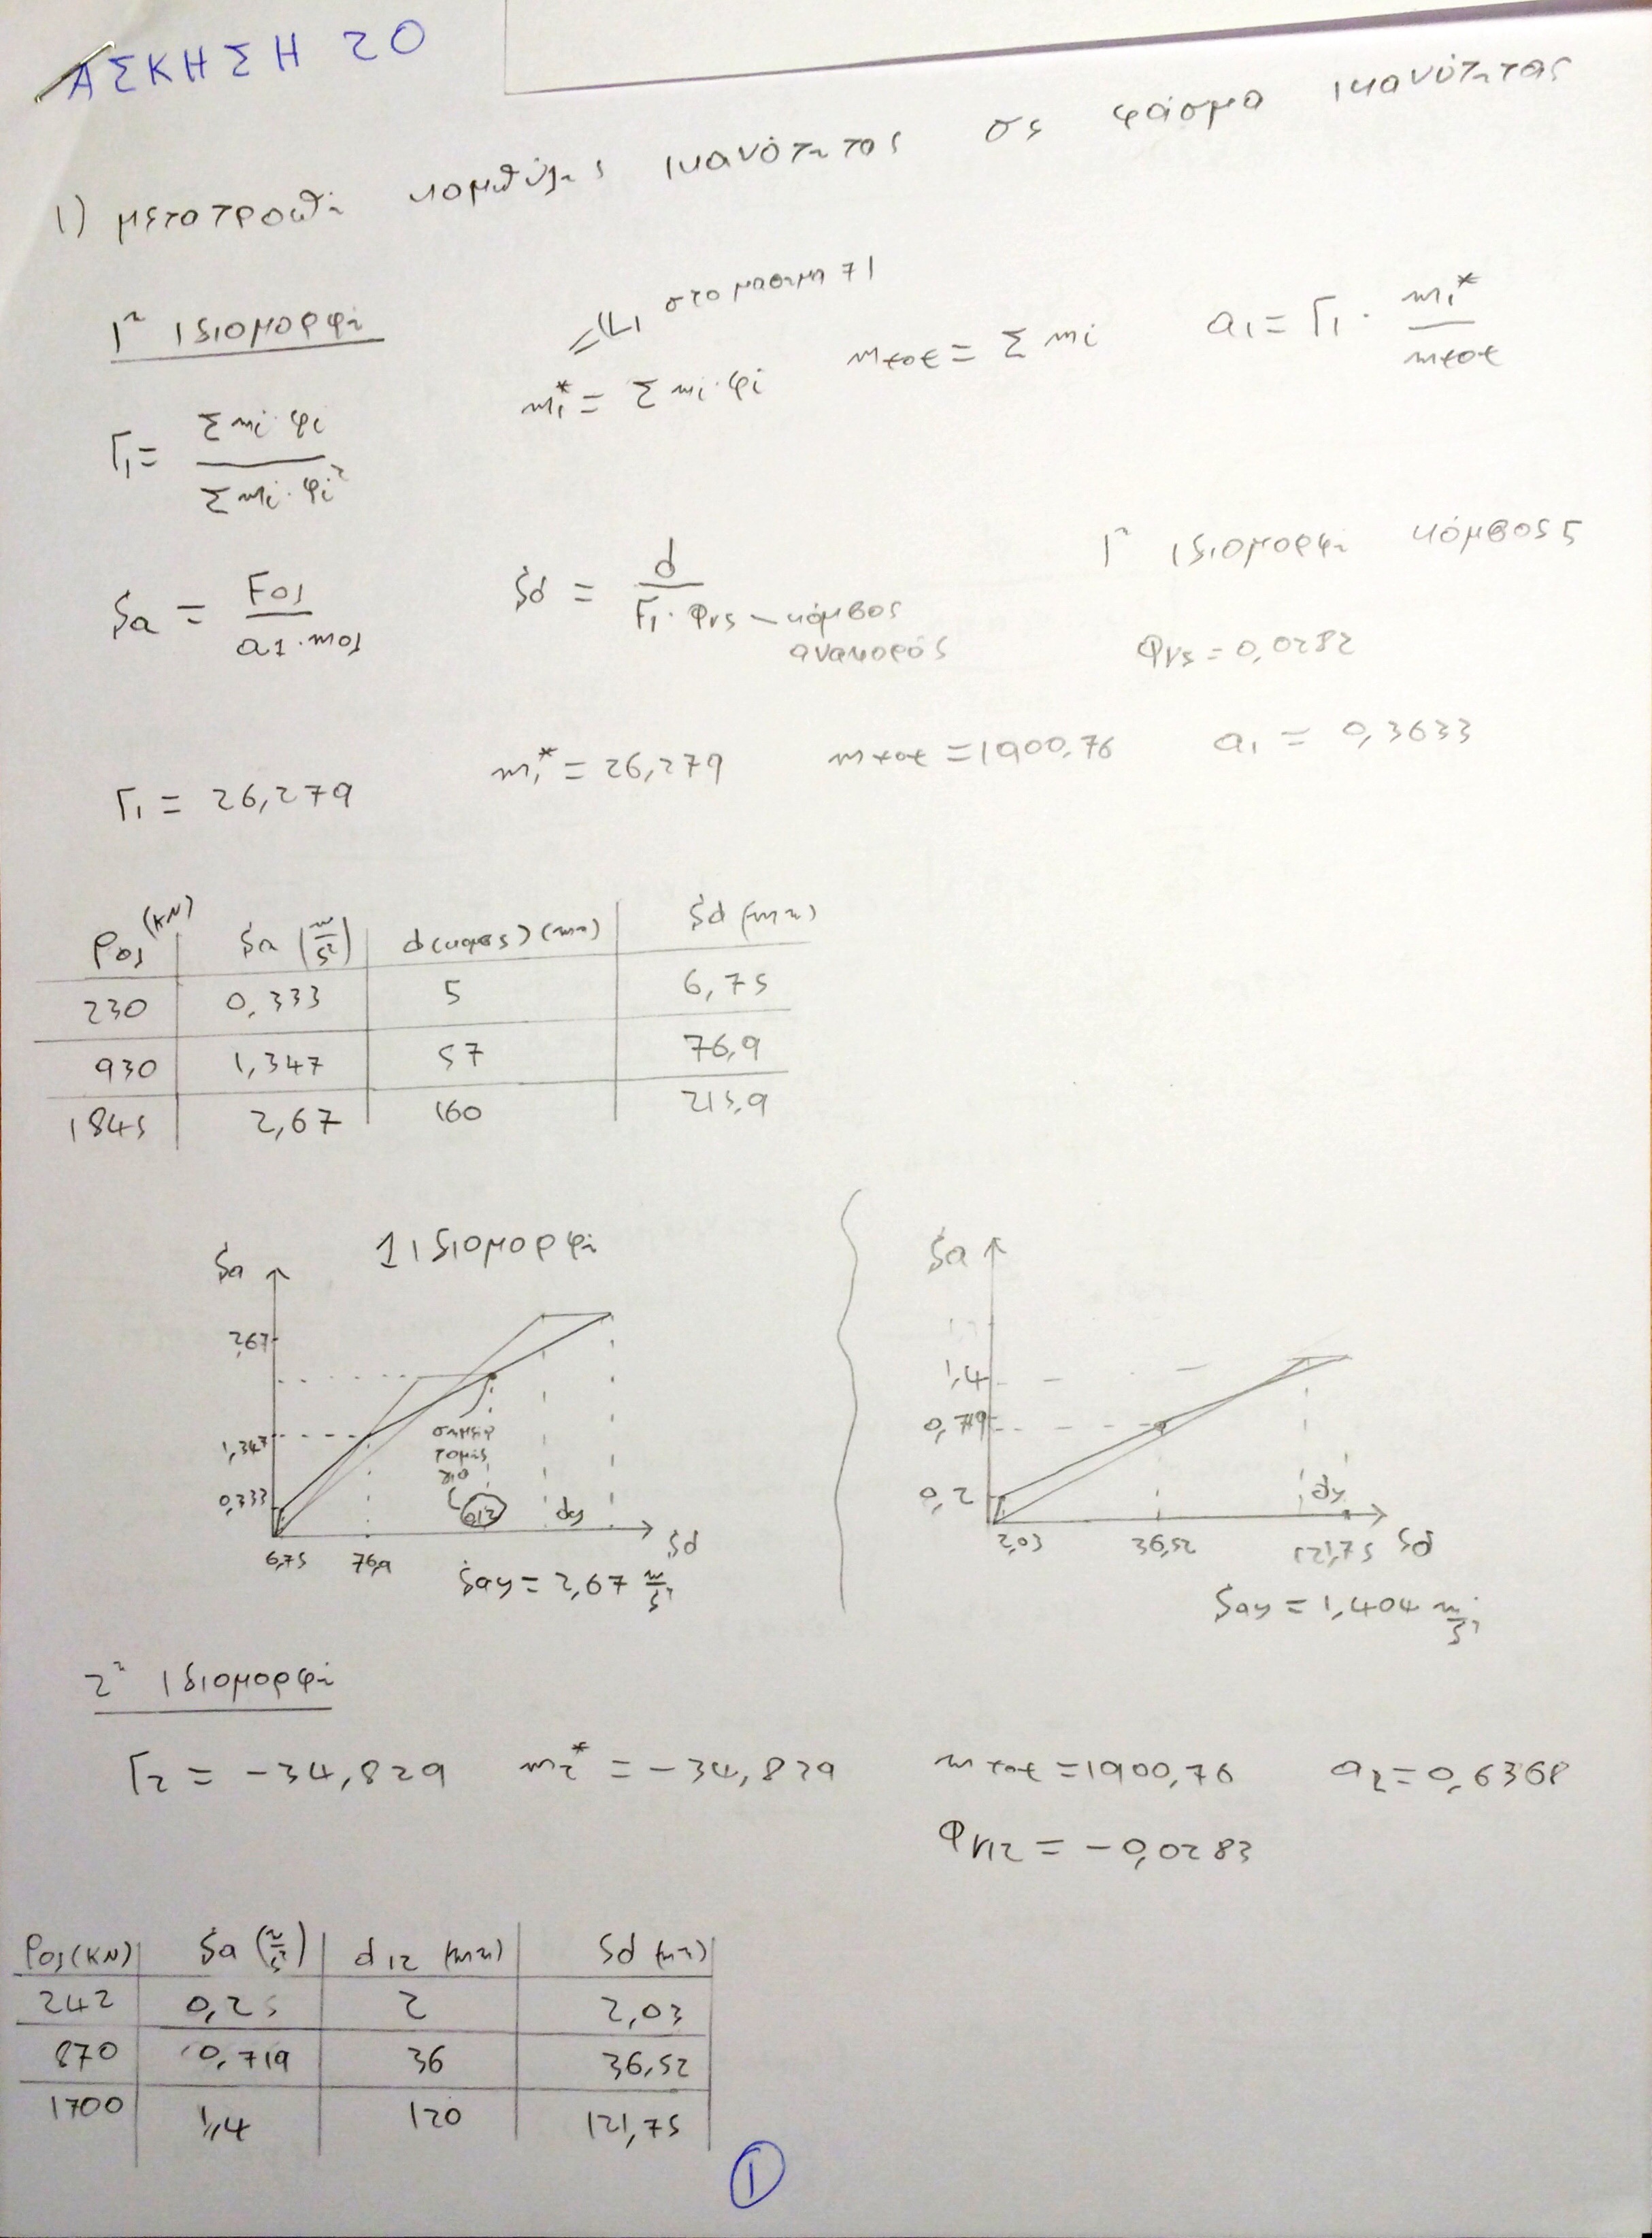 ΑΣΚΗΣΗ 20
1) μετατροπή καμπύλης ικανότητας σε φάσμα ικανότητας
1η ιδιομορφή
=(L1 στο μάθημα 7)
Γ1 = Σmi·φi / Σmi·φi²
m1* = Σmi·φi
mtot = Σmi
a1 = Γ1 · m1* / mtot
Sa = Fολ / a1·mολ
Sd = d / Γ1·φrs – κόμβος αναφοράς
1η ιδιομορφή κόμβος 5
φrs = 0,0282
Γ1 = 26,279
m1* = 26,279
mtot = 1900,76
a1 = 0,3633
Pολ (KN) | Sa (m/s²) | d(κομβ 5) (mm) | Sd (mm)
230 | 0,333 | 5 | 6,75
930 | 1,347 | 57 | 76,9
1845 | 2,67 | 160 | 215,9
1 ιδιομορφή
Sa
2,67
1,347
0,333
σημείο
τομής
για
dy
6,75
76,9
Sd
Say = 2,67 m/s²
Sa
1,4
0,719
0,2
dy
2,03
36,52
121,75
Sd
Say = 1,404 m/s²
2η ιδιομορφή
Γ2 = -34,829
m2* = -34,829
mtot = 1900,76
a2 = 0,6368
φr12 = -0,0283
Pολ (KN) | Sa (m/s²) | d12 (mm) | Sd (mm)
242 | 0,25 | 2 | 2,03
870 | 0,719 | 36 | 36,52
1700 | 1,4 | 120 | 121,75
1